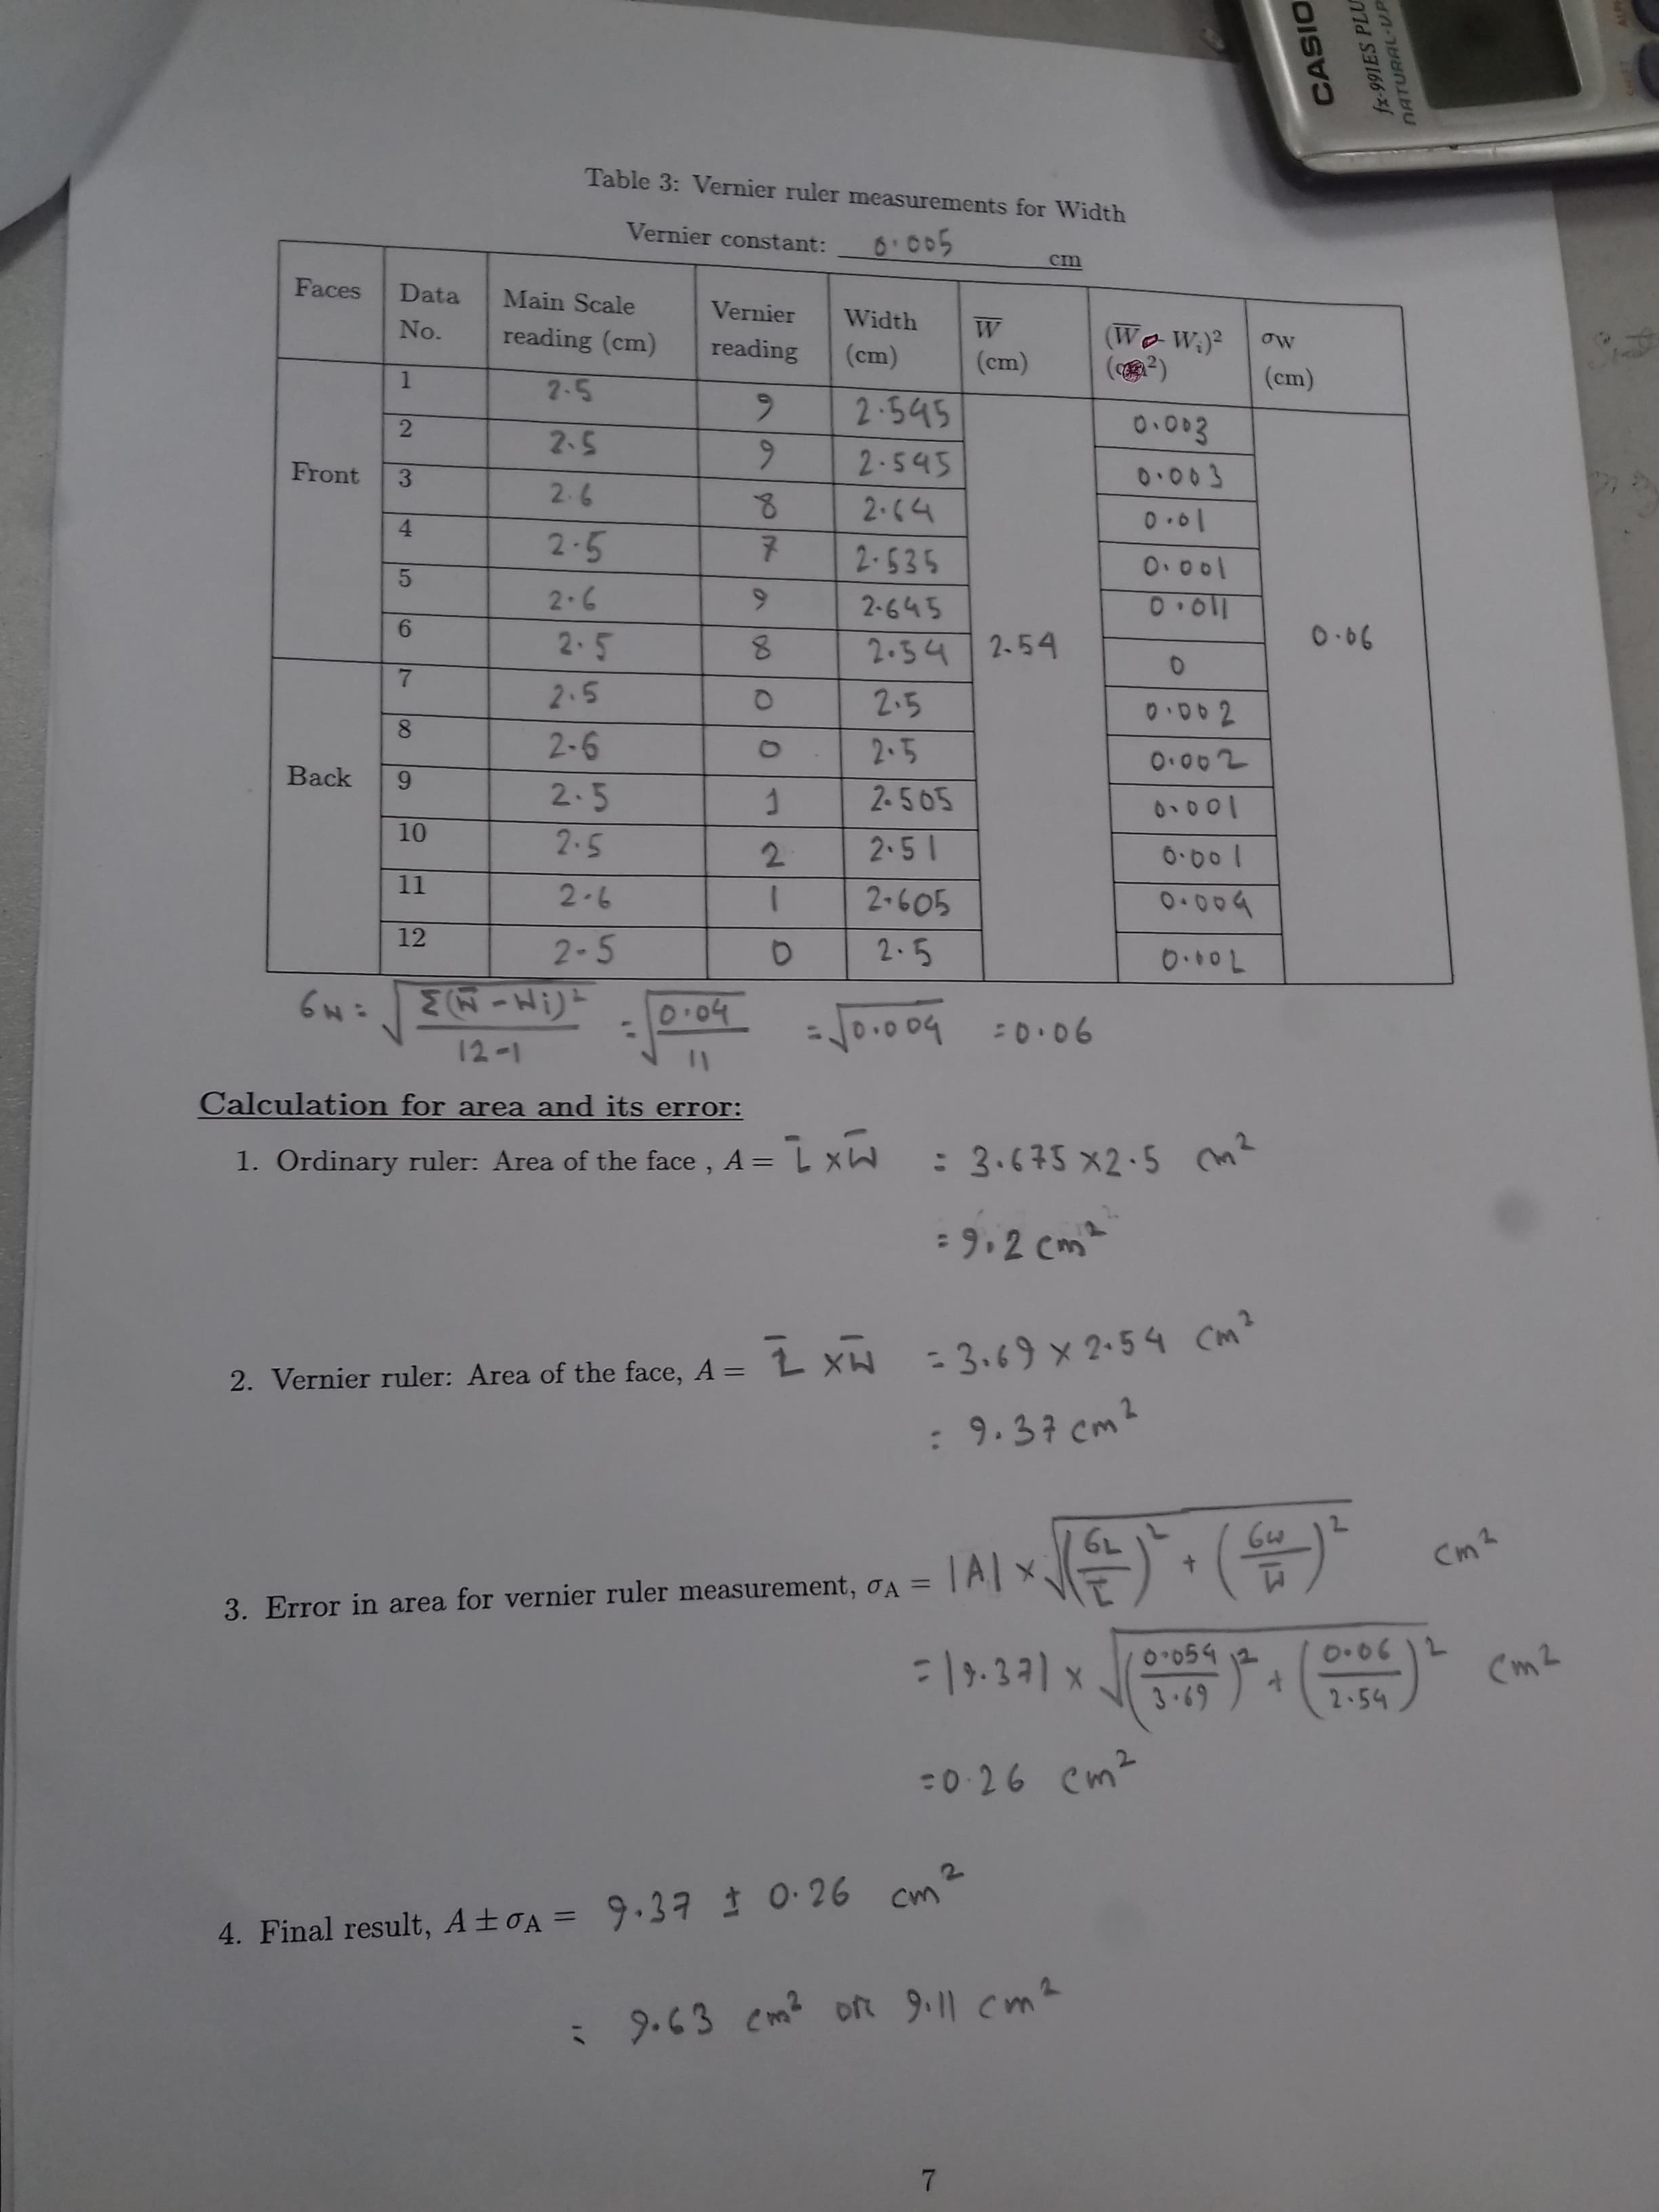 CASIO
fx-991ES PLU
NATURAL-V.P
Table 3: Vernier ruler measurements for Width
Vernier constant: 0.005 cm
Faces Data No. Main Scale reading (cm) Vernier reading Width (cm) W̅ (cm) (W̅ - Wᵢ)² σW (cm)
Front 1 2.5 9 2.545 2.54 0.003 0.06
2 2.5 9 2.545 0.003
3 2.6 8 2.64 0.01
4 2.5 7 2.535 0.001
5 2.6 9 2.645 0.011
6 2.5 8 2.54 0
Back 7 2.5 0 2.5 0.002
8 2.6 0 2.5 0.002
9 2.5 1 2.505 0.001
10 2.5 2 2.51 0.001
11 2.6 1 2.605 0.004
12 2.5 0 2.5 0.002
σW = √(Σ(W̅ - Wi)² / 12-1) = √(0.04 / 11) = √0.004 = 0.06
Calculation for area and its error:
1. Ordinary ruler: Area of the face , A = L̅ × W̅ = 3.675 × 2.5 cm²
= 9.2 cm²
2. Vernier ruler: Area of the face, A = L̅ × W̅ = 3.69 × 2.54 cm²
= 9.37 cm²
3. Error in area for vernier ruler measurement, σA = |A| × √((σL / L̅)² + (σW / W̅)²) cm²
= |9.37| × √((0.054 / 3.69)² + (0.06 / 2.54)²) cm²
= 0.26 cm²
4. Final result, A ± σA = 9.37 ± 0.26 cm²
= 9.63 cm² or 9.11 cm²
7